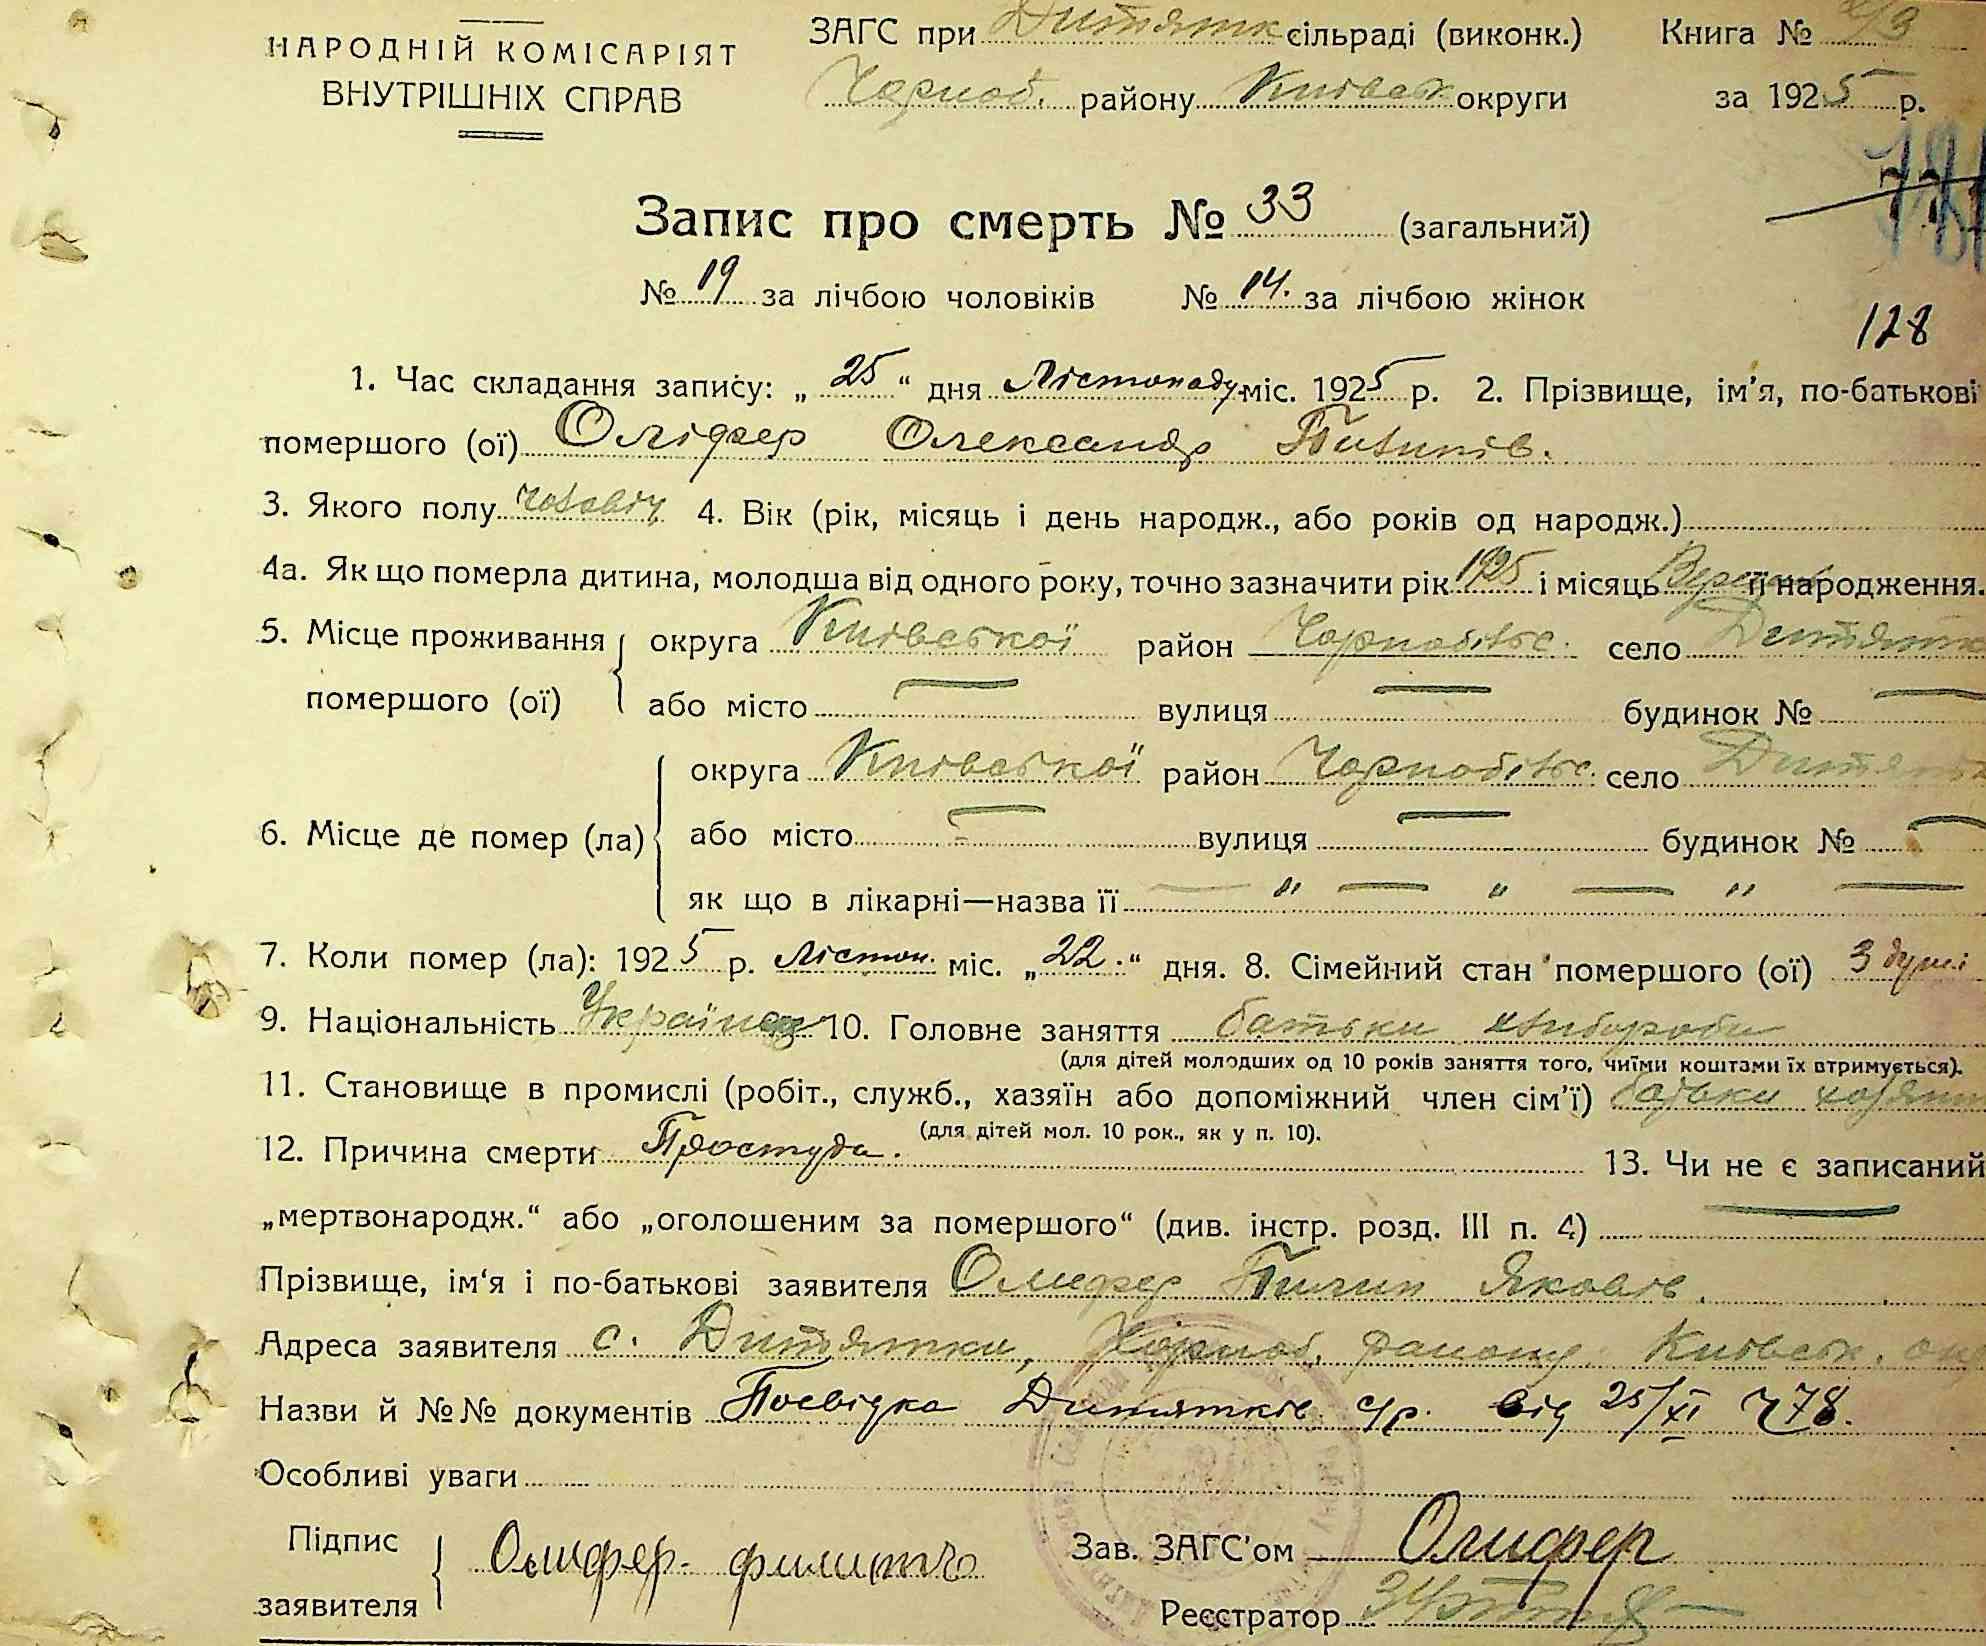 НАРОДНІЙ КОМІСАРІЯТ
ВНУТРІШНІХ СПРАВ
ЗАГС при Дитятк сільраді (виконк.) Книга №
Чорноб. району Київськ округи за 1925 р.
Запис про смерть № 33 (загальний)
№ 19 за лічбою чоловіків № 14. за лічбою жінок
128
1. Час складання запису: „ 25 “ дня Лістопаду міс. 1925 р. 2. Прізвище, ім'я, по-батькові
помершого (ої) Оліфер Олександр Пилипів.
3. Якого полу чоловіч 4. Вік (рік, місяць і день народж., або років од народж.)
4а. Як що померла дитина, молодша від одного року, точно зазначити рік 1925 і місяць її народження.
5. Місце проживання помершого (ої) округа Київської район Чорнобильс. село Дитятк
або місто — вулиця — будинок № —
6. Місце де помер (ла) округа Київської район Чорнобильс. село Дитятк
або місто — вулиця — будинок № —
як що в лікарні—назва її — " — " — " —
7. Коли помер (ла): 1925 р. Лістоп. міс. „ 22. “ дня. 8. Сімейний стан помершого (ої) 3 душі
9. Національність 10. Головне заняття батьки хлібороби
(для дітей молодших од 10 років заняття того, чиїми коштами їх втримується).
11. Становище в промислі (робіт., служб., хазяїн або допоміжний член сім'ї) батьки
(для дітей мол. 10 рок., як у п. 10).
12. Причина смерти Простуда. 13. Чи не є записаний
„мертвонародж.“ або „оголошеним за помершого“ (див. інстр. розд. III п. 4) —
Прізвище, ім'я і по-батькові заявителя Олифер Пилип Яковів.
Адреса заявителя с. Дитятки, Чорноб. району Київськ. окр
Назви й №№ документів Посвідка Дитятків с/р. від 25/XI ч 78.
Особливі уваги
Підпис заявителя Олифер Филипъ
Зав. ЗАГС'ом Олифер
Реєстратор